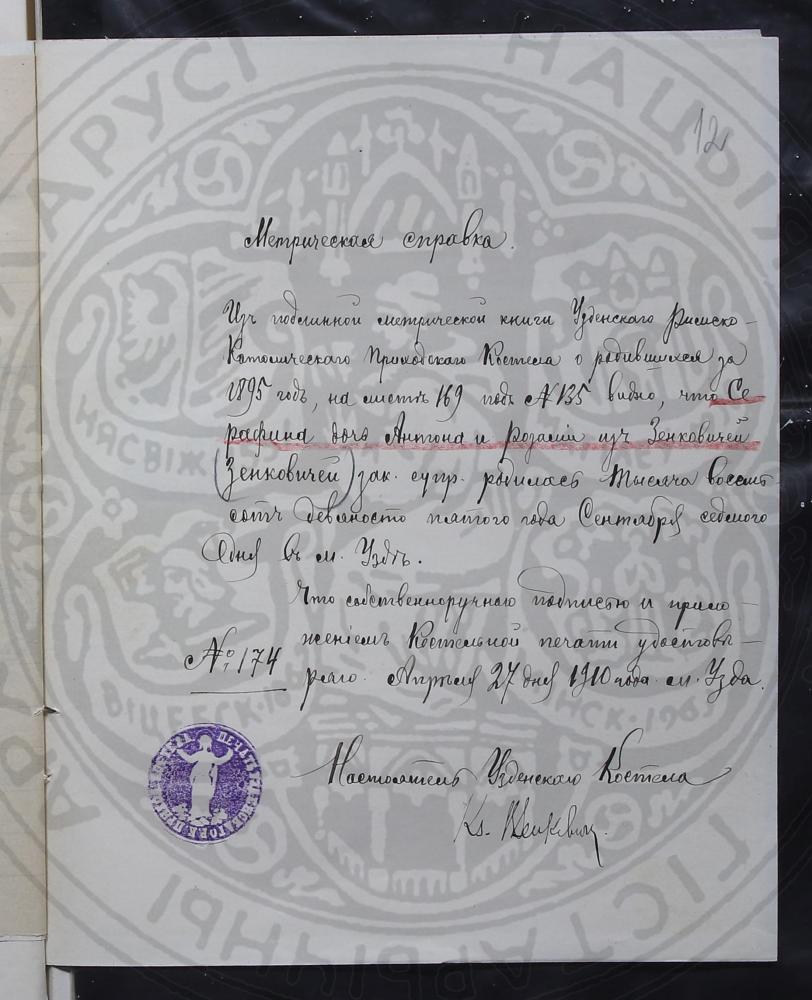 12
Метрическая справка.
Изъ подлинной метрической книги Узденскаго Римско-
Католическаго Приходскаго Костела о родившихся за
1895 годъ, на листѣ 169 подъ №135 видно, что Се
рафина дочь Антона и Розаліи изъ Зенковичей
(Зенковичей) зак. супр. родилась тысяча восемь
сотъ девяносто пятого года Сентября седьмого
дня въ м. Уздѣ.
Что собственноручною подписью и прило-
женіемъ Костельной печати удостовѣ-
ряю. Апрѣля 27 дня 1910 года. м. Узда.
№ 174
Настоятель Узденскаго Костела
Кs.
НАЦЫЯНАЛЬНЫ
ГІСТАРЫЧНЫ
АРХІЎ
БЕЛАРУСІ